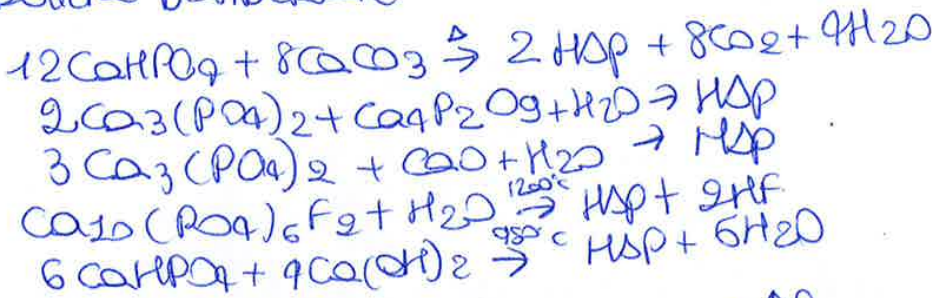 12CaHPO4 + 8CaCO3 →Δ 2 HAp + 8CO2 + 4H2O
2Ca3(PO4)2 + Ca4P2O9 + H2O → HAp
3 Ca3(PO4)2 + CaO + H2O → HAp
Ca10(PO4)6F2 + H2O →1200°C HAp + 2HF
6 CaHPO4 + 4Ca(OH)2 →950°C HAp + 6H2O